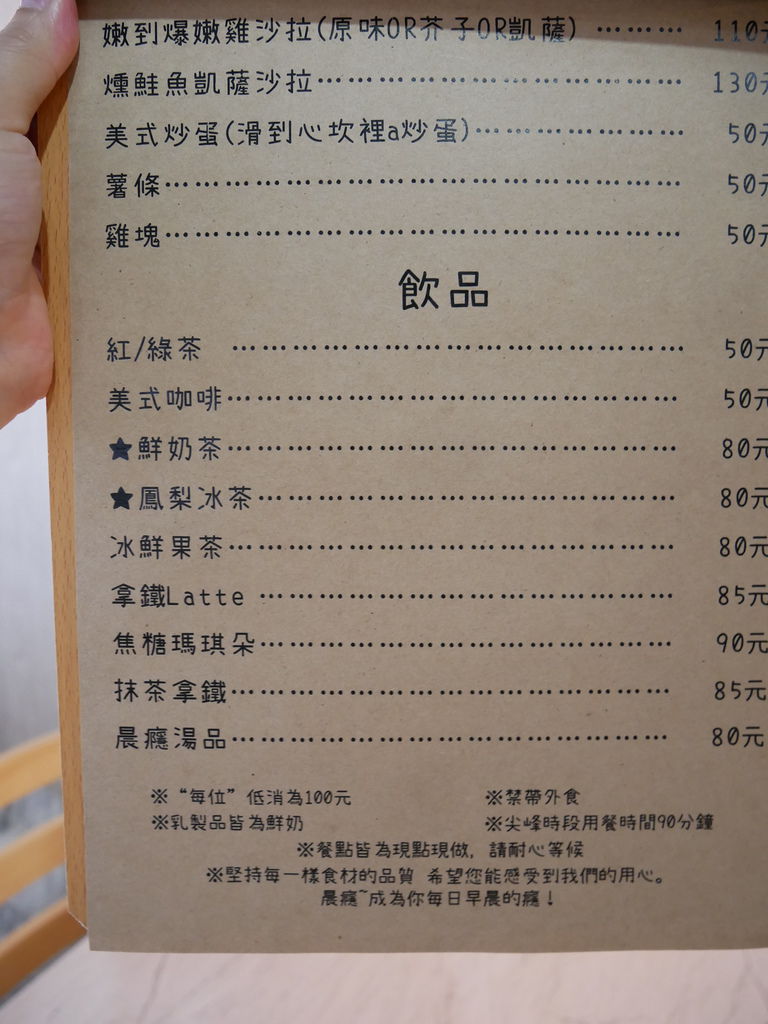 嫩到爆嫩雞沙拉(原味OR芥子OR凱薩) ……………… 110元
燻鮭魚凱薩沙拉……………………………… 130元
美式炒蛋(滑到心坎裡a炒蛋)…………………… 50元
薯條……………………………………………… 50元
雞塊……………………………………………… 50元
飲品
紅/綠茶 ………………………………………… 50元
美式咖啡………………………………………… 50元
★鮮奶茶………………………………………… 80元
★鳳梨冰茶……………………………………… 80元
冰鮮果茶………………………………………… 80元
拿鐵Latte ……………………………………… 85元
焦糖瑪琪朵……………………………………… 90元
抹茶拿鐵………………………………………… 85元
晨癮湯品………………………………………… 80元
※“每位”低消為100元 ※禁帶外食
※乳製品皆為鮮奶 ※尖峰時段用餐時間90分鐘
※餐點皆為現點現做, 請耐心等候
※堅持每一樣食材的品質 希望您能感受到我們的用心。
晨癮~成為你每日早晨的癮!